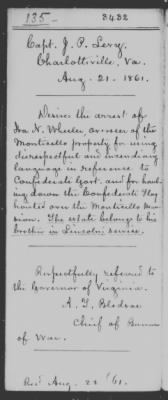 135- 3432
Capt. J. P. Levy,
Charlottsville, Va.
Aug. 21. 1861.
Desires the arrest of
N. Wheeler, overseer of the
Monticello property for using
disrespectful and incendiary
language in reference to
Confederate Govt. and for haul-
ing down the Confederate Flag
hoisted over the Monticello Man-
sion. The estate belongs to his
brother in Lincoln's service.
Respectfully referred to
the Governor of Virginia.
A. T. Bledsoe
Chief of Bureau
of War.
Recd Aug. 23 /61.